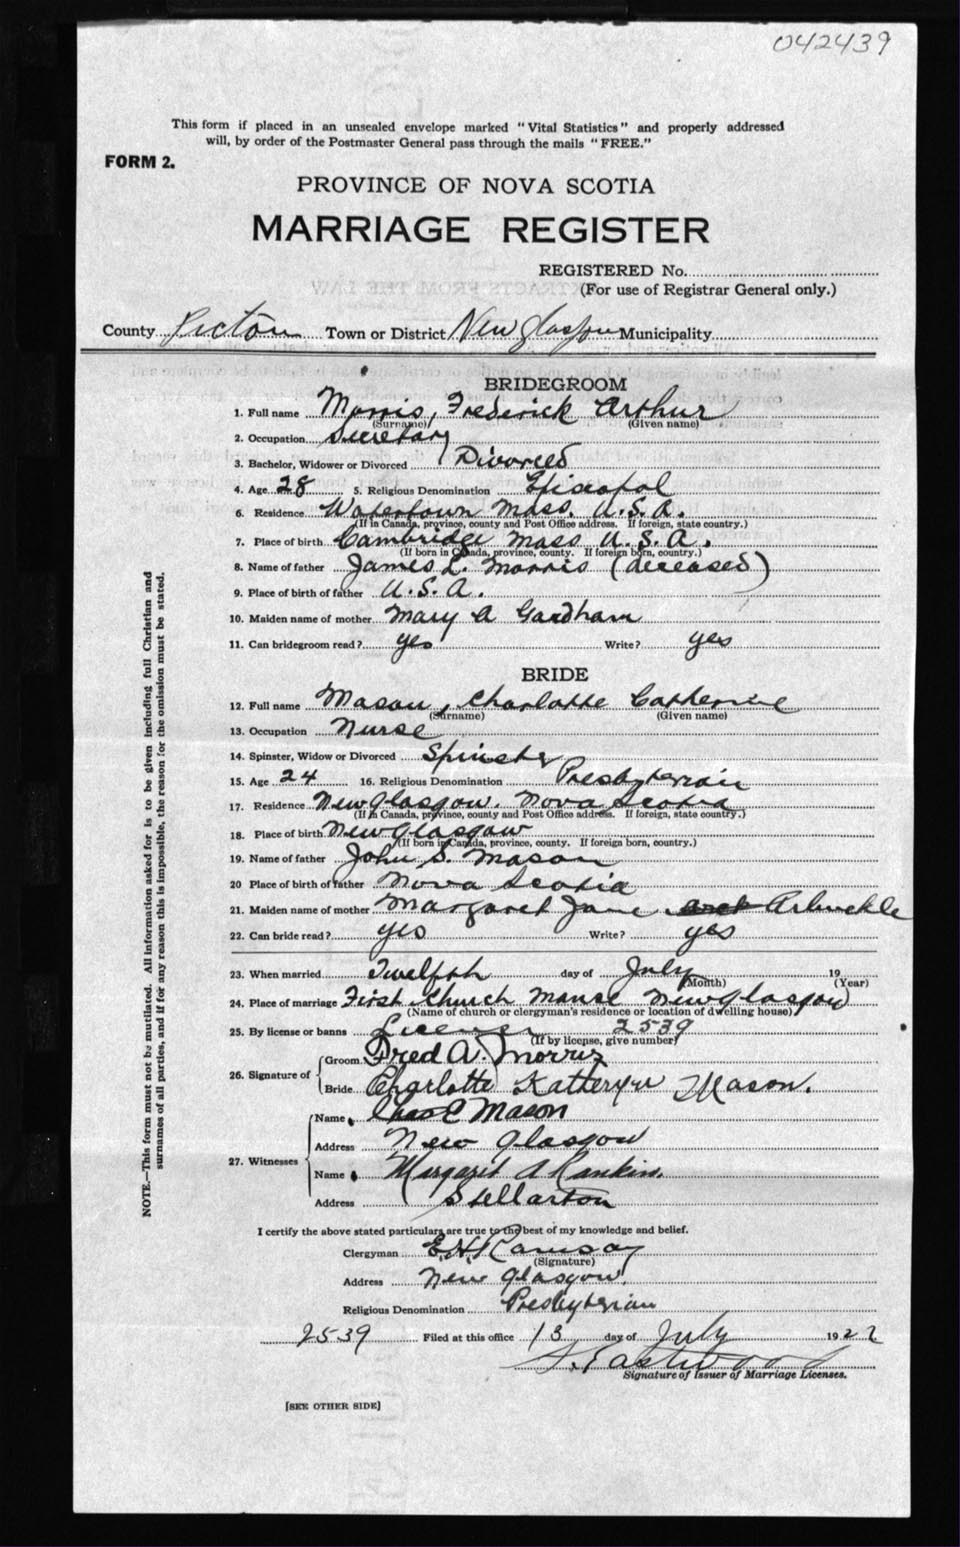 042439
This form if placed in an unsealed envelope marked "Vital Statistics" and properly addressed
will, by order of the Postmaster General pass through the mails "FREE."
FORM 2.
PROVINCE OF NOVA SCOTIA
MARRIAGE REGISTER
REGISTERED No.
(For use of Registrar General only.)
County Pictou Town or District New Glasgow Municipality
BRIDEGROOM
1. Full name Morris, Frederick Arthur
(Surname) (Given name)
2. Occupation Secretary
3. Bachelor, Widower or Divorced Divorced
4. Age 28 5. Religious Denomination Episcopal
6. Residence Watertown Mass. U.S.A.
(If in Canada, province, county and Post Office address. If foreign, state country.)
7. Place of birth Cambridge Mass U.S.A.
(If born in Canada, province, county. If foreign born, country.)
8. Name of father James L. Morris (deceased)
9. Place of birth of father U.S.A.
10. Maiden name of mother Mary A Gardham
11. Can bridegroom read? yes Write? yes
BRIDE
12. Full name Mason, Charlotte Catherine
(Surname) (Given name)
13. Occupation Nurse
14. Spinster, Widow or Divorced Spinster
15. Age 24 16. Religious Denomination Presbyterian
17. Residence New Glasgow. Nova Scotia
(If in Canada, province, county and Post Office address. If foreign, state country.)
18. Place of birth New Glasgow
(If born in Canada, province, county. If foreign born, country.)
19. Name of father John S. Mason
20 Place of birth of father Nova Scotia
21. Maiden name of mother Margaret Jane Arbuckle
22. Can bride read? yes Write? yes
23. When married Twelfth day of July 19
(Month) (Year)
24. Place of marriage First Church Manse New Glasgow
(Name of church or clergyman's residence or location of dwelling house)
25. By license or banns License 2539
(If by license, give number)
26. Signature of
Groom Fred A. Morris
Bride Charlotte Katheryn Mason.
27. Witnesses
Name Chas E Mason
Address New Glasgow
Name Margaret A Rankin.
Address Stellarton
I certify the above stated particulars are true to the best of my knowledge and belief.
Clergyman E.H. Ramsay
(Signature)
Address New Glasgow
Religious Denomination Presbyterian
2539 Filed at this office 13 day of July 1922
Eastwood
Signature of Issuer of Marriage Licenses.
[SEE OTHER SIDE]
NOTE.—This form must not be mutilated. All information asked for is to be given including full Christian and
surnames of all parties, and if for any reason this is impossible, the reason for the omission must be stated.